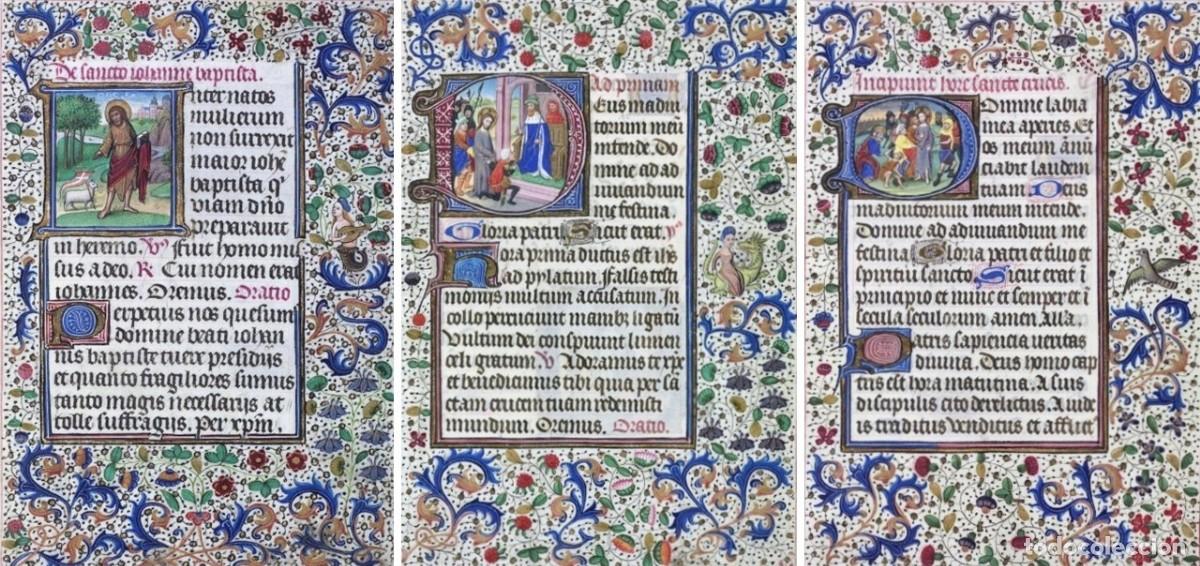 De sancto iohanne baptista.
nter natos
mulierum
non surrexit
maior iohē
baptista q'
viam dn̄o
preparavit
in heremo. V' fuit homo mis
sus a deo. R. Cui nomen erat
iohannes. Oremus. Oratio
Perpetuis nos quesumꝰ
domine beati iohan
nis baptiste tuere presidijs
et quanto fragiliores sumus
tanto magis necessarijs at
tolle suffragijs. Per xpm̄.
Ad primam
Deus in adiu
torium meū
intende. Do
mine ad ad
iuuandum
me festina.
Gloria patri Sicut erat. ys
Hora prima ductus est ihs
ad pylatum falsis testi
monijs multum accusatum. In
collo percuciunt manibꝫ ligatū
Vultum dei conspuunt lumen
celi gratum V Adoramus te xpe
et benedicimus tibi quia per sā
ctam crucem tuam redemisti
mundum. Oremus. Oratio.
Incipiunt hore sancte crucis.
Domine labia
mea aperies. Et
os meum ānū
ciabit laudem
tuam Deus
in adiutorium meum intende.
Domine ad adiuuandum me
festina Gloria patri et filio et
spiritui sancto Sicut erat ī
principio et nunc et semper et ī
secula seculorum amen. Alla.
Patris sapiencia veritas
diuina. Deus homo cap
tus est hora matutina. A suis
discipulis cito derelictus. A iude
is traditus venditus et afflict
todocoleccion